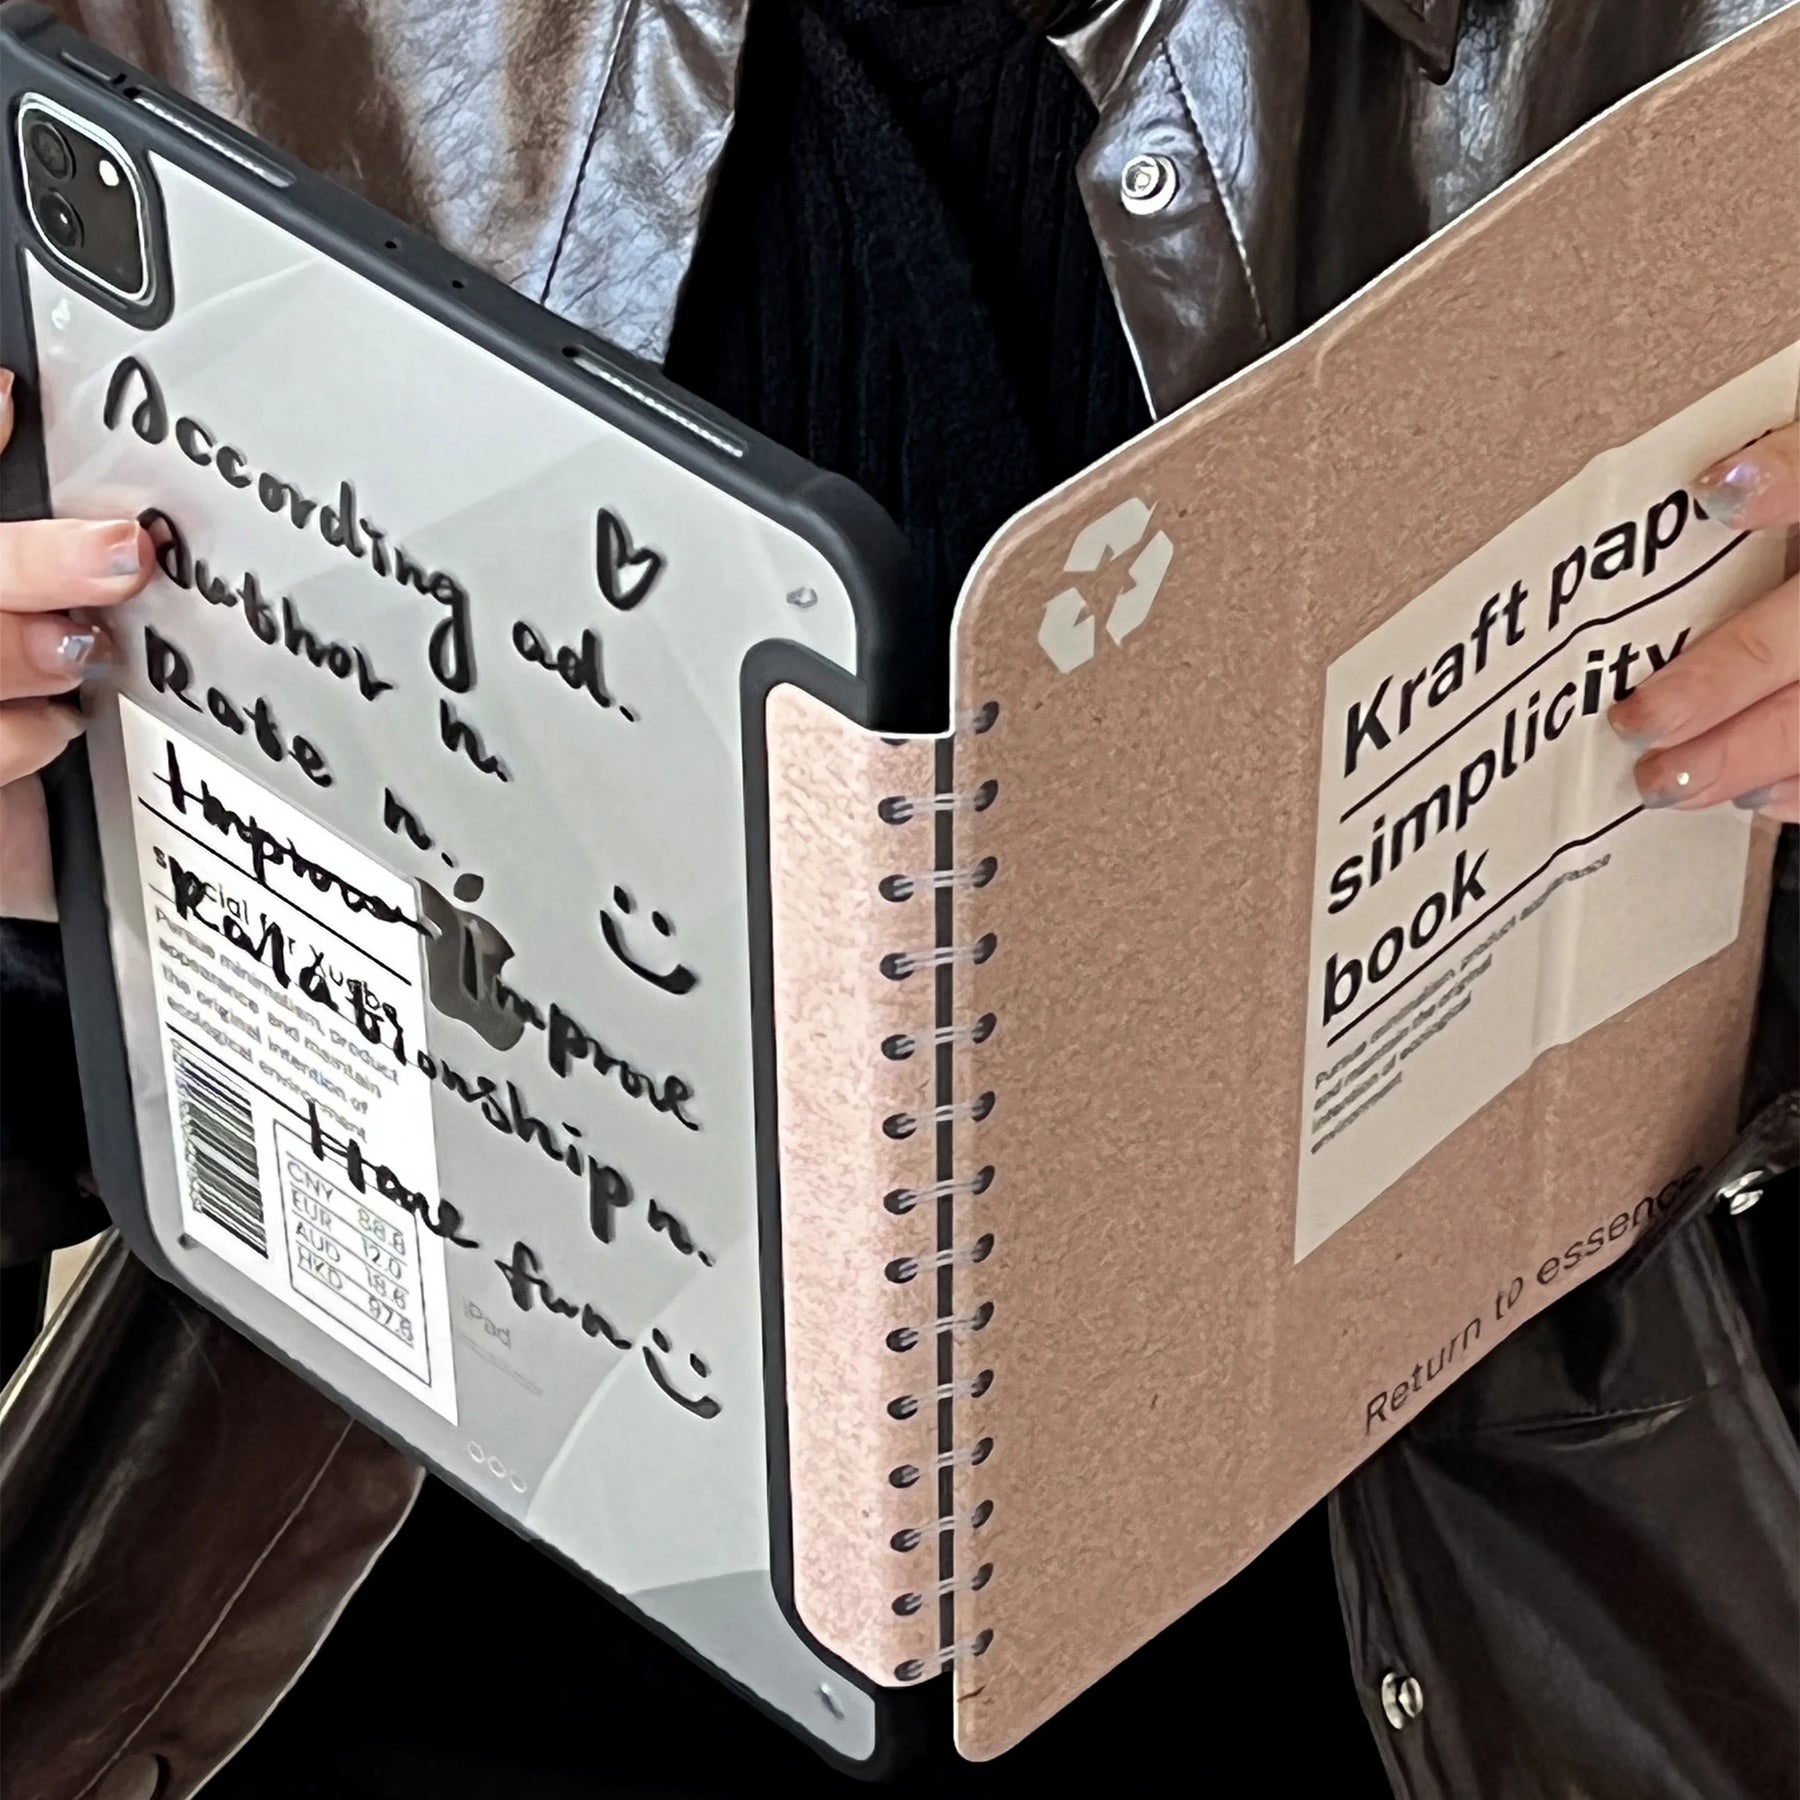 According ad.
Author n.
Rate n.
Improve
Ralationship n.
Have fun
Pursue minimalism, product
appearance and maintain
the original intention of
ecological environment
CNY 88.8
EUR 12.0
AUD 18.6
HKD 97.6
iPad
Kraft pape
simplicity
book
Pursue minimalism, product appearance
and maintain the original
intention of ecological
environment
Return to essence